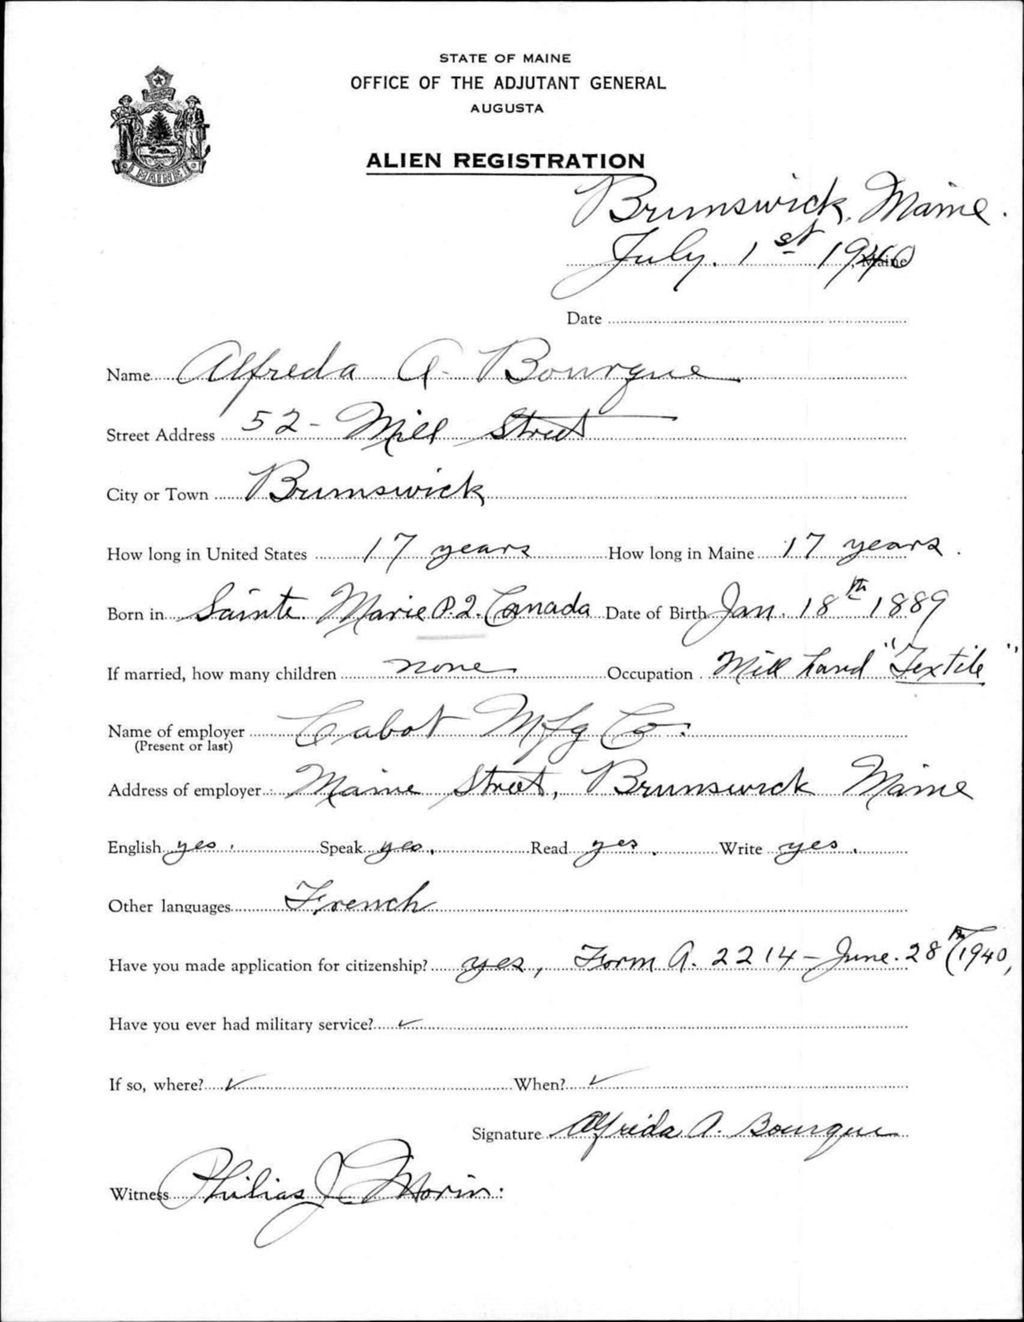 STATE OF MAINE
OFFICE OF THE ADJUTANT GENERAL
AUGUSTA
MAINE
ALIEN REGISTRATION
Brunswick, Maine.
July. 1st 1940, Maine
Date
Name Alfreda A. Bourque
Street Address 52 - Mill Street
City or Town Brunswick
How long in United States 17 years How long in Maine 17 years.
Born in Sainte. Marie P.Q. Canada Date of Birth Jan. 18th 1889
If married, how many children none Occupation Mill hand "Textile"
Name of employer Cabot Mfg Co.
(Present or last)
Address of employer Maine Street, Brunswick Maine
English yes. Speak yes. Read yes. Write yes.
Other languages French
Have you made application for citizenship? yes, Form A. 2214 - June. 28th 1940,
Have you ever had military service? ✓
If so, where? ✓ When? ✓
Signature Alfreda A. Bourque
Witness Philias J. Morin.